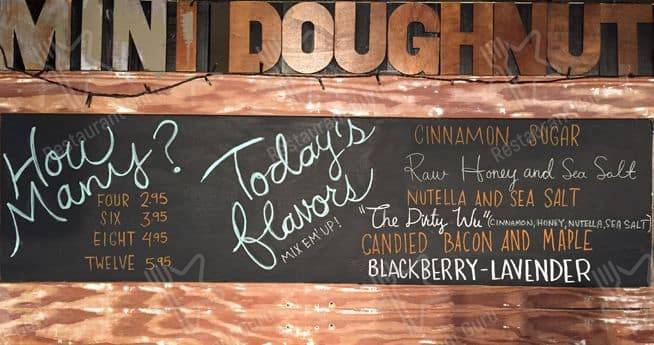 MINI DOUGHNUT
How Many?
FOUR 2.95
SIX 3.95
EIGHT 4.95
TWELVE 5.95
Today's flavors
MIX EM'UP!
CINNAMON SUGAR
Raw Honey and Sea Salt
NUTELLA AND SEA SALT
"The Dirty Wu" (CINNAMON, HONEY, NUTELLA, SEA SALT)
CANDIED BACON AND MAPLE
BLACKBERRY-LAVENDER